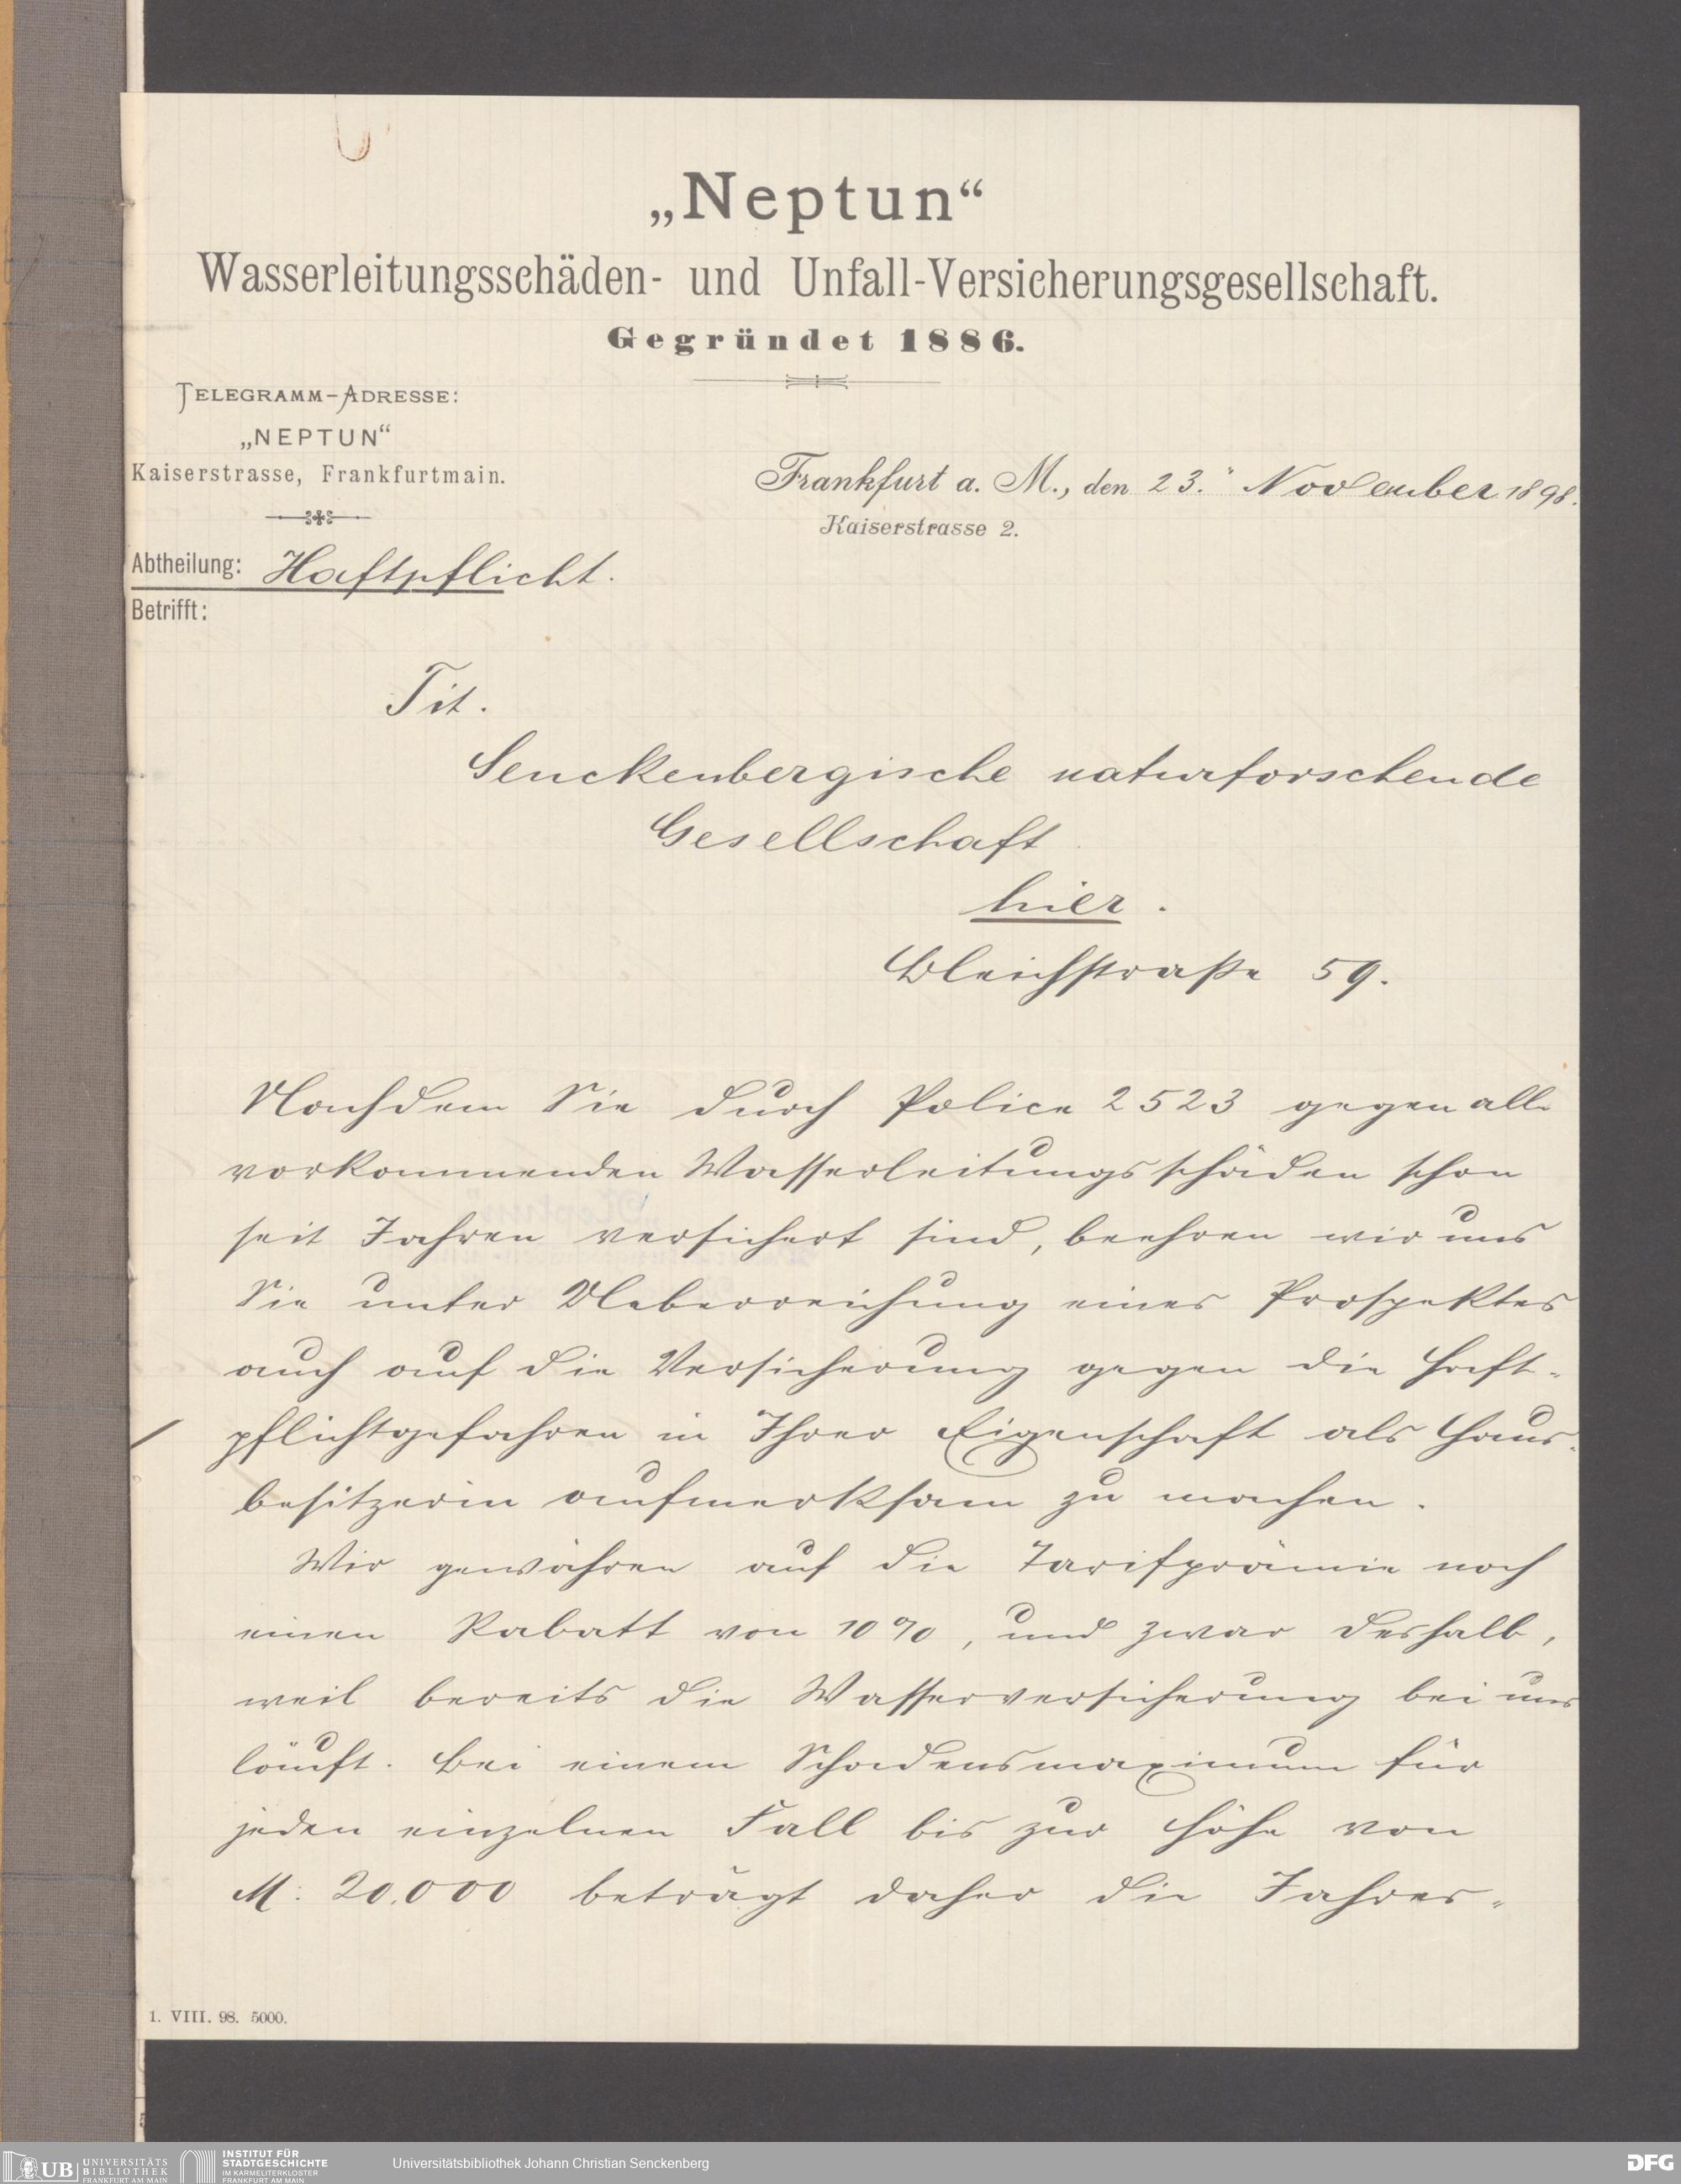 „Neptun“
Wasserleitungsschäden- und Unfall-Versicherungsgesellschaft.
Gegründet 1886.
TELEGRAMM-ADRESSE:
„NEPTUN“
Kaiserstrasse, Frankfurtmain.
Frankfurt a. M., den 23. November 1898.
Kaiserstrasse 2.
Abtheilung: Haftpflicht.
Betrifft:
Tit.
Senckenbergische naturforschende
Gesellschaft
hier.
Bleichstraße 59.
Nachdem Sie durch Police 2523 gegen alle
vorkommenden Wasserleitungsschäden schon
seit Jahren versichert sind, beehren wir uns
Sie unter Ueberreichung eines Prospektes
auch auf die Versicherung gegen die Haft-
pflichtgefahren in Ihrer Eigenschaft als Haus-
besitzerin aufmerksam zu machen.
Wir gewähren auf die Tarifprämie noch
einen Rabatt von 10%, und zwar deshalb,
weil bereits die Wasserversicherung bei uns
läuft. Bei einem Schadensmaximum für
jeden einzelnen Fall bis zur Höhe von
M. 20.000 beträgt daher die Jahres-
1. VIII. 98. 5000.
UB UNIVERSITÄTS
BIBLIOTHEK
FRANKFURT AM MAIN
INSTITUT FÜR
STADTGESCHICHTE
IM KARMELITERKLOSTER
FRANKFURT AM MAIN
Universitätsbibliothek Johann Christian Senckenberg
DFG